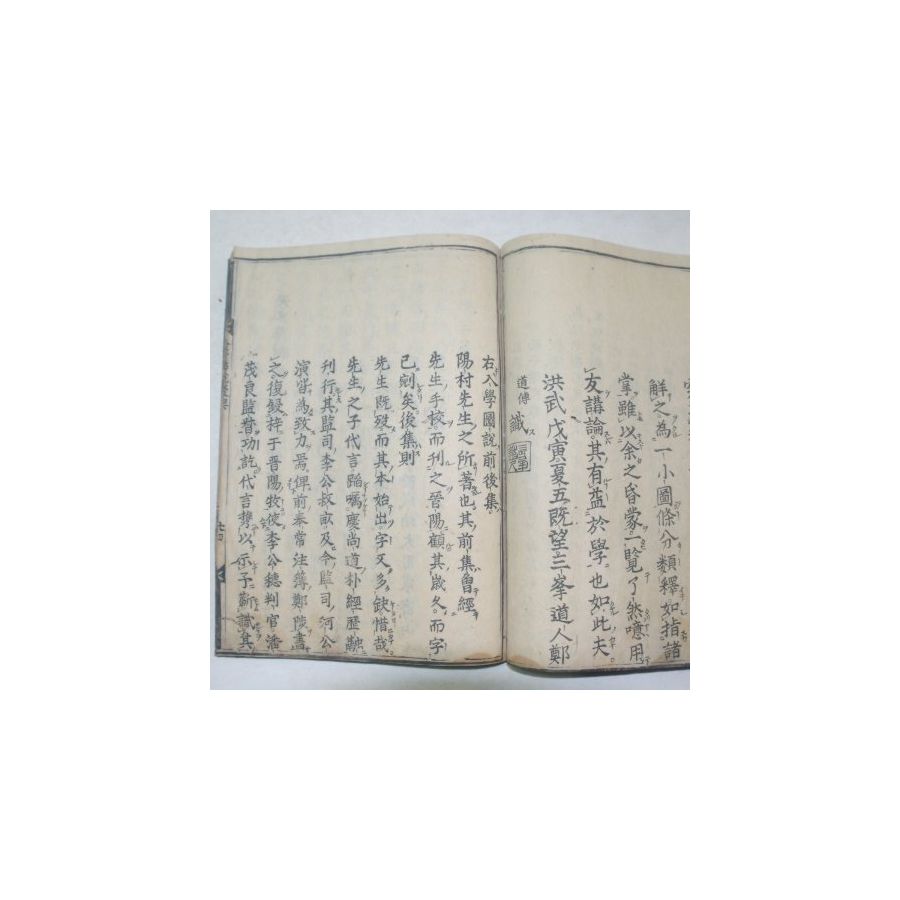 解之為一小圖條分類釋如指諸
掌雖以余之昏蒙一覽了然噫用
友講論其有益於學也如此夫
洪武戊寅夏五既望三峯道人鄭
道傳識
右入學圖說前後集
陽村先生之所著也其前集曾經
先生手校而刊之晉陽顧其歲久而字
已刓矣後集則
先生既歿而其本始出字又多缺惜哉
先生之子代言蹈囑慶尚道朴經歷融
刊行其監司李公叔畝及今監司河公
演皆為致力焉俾前奉常注簿鄭陟書
之復鋟梓于晋陽牧使李公穗判官潘
茂良監督功訖代言甥以示予斯識其